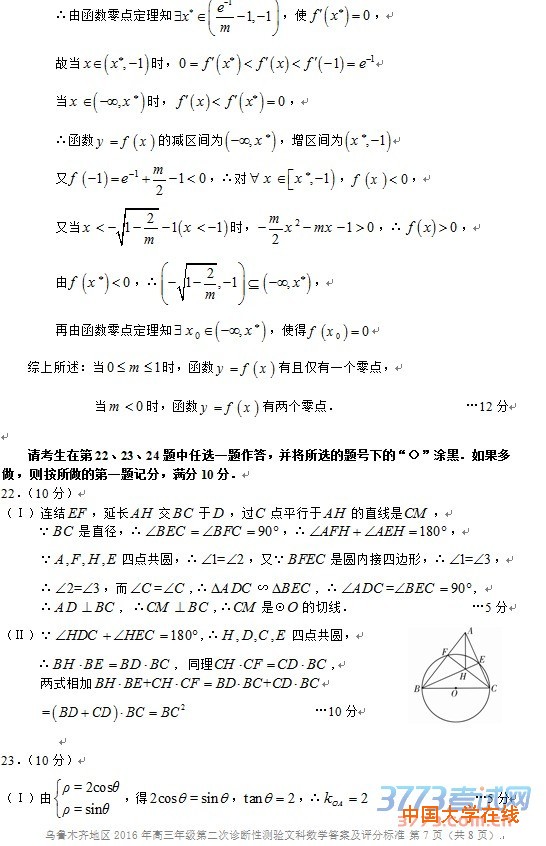 ∴由函数零点定理知∃x*∈(e⁻¹/m −1,−1),使f′(x*)=0,
故当x∈(x*,−1)时,0=f′(x*)<f′(x)<f′(−1)=e⁻¹
当x∈(−∞,x*)时,f′(x)<f′(x*)=0,
∴函数y=f(x)的减区间为(−∞,x*),增区间为(x*,−1)
又f(−1)=e⁻¹+m/2−1<0,∴对∀x∈[x*,−1),f(x)<0,
又当x<−√(1−2/m)−1(x<−1)时,−m/2 x²−mx−1>0,∴f(x)>0,
由f(x*)<0,∴(−√(1−2/m),−1)⊆(−∞,x*),
再由函数零点定理知∃x₀∈(−∞,x*),使得f(x₀)=0
综上所述:当0≤m≤1时,函数y=f(x)有且仅有一个零点,
当m<0时,函数y=f(x)有两个零点. …12分
请考生在第22、23、24题中任选一题作答,并将所选的题号下的“O”涂黑.如果多
做,则按所做的第一题记分,满分10分.
22.(10分)
(Ⅰ)连结EF,延长AH交BC于D,过C点平行于AH的直线是CM,
∵BC是直径,∴∠BEC=∠BFC=90°,∴∠AFH+∠AEH=180°,
∵A,F,H,E四点共圆,∴∠1=∠2,又∵BFEC是圆内接四边形,∴∠1=∠3,
∴∠2=∠3,而∠C=∠C,∴ΔADC∽ΔBEC,∴∠ADC=∠BEC=90°,
∴AD⊥BC,∴CM⊥BC,∴CM是⊙O的切线. …5分
(Ⅱ)∵∠HDC+∠HEC=180°,∴H,D,C,E四点共圆,
∴BH·BE=BD·BC,同理CH·CF=CD·BC,
两式相加BH·BE+CH·CF=BD·BC+CD·BC
=(BD+CD)·BC=BC² …10分
A
F
E
H
B
O
C
23.(10分)
(Ⅰ)由{ρ=2cosθ ρ=sinθ,得2cosθ=sinθ,tanθ=2,∴k_OA=2 …5分
3773考试网
中国大学在线
乌鲁木齐地区2016年高三年级第二次诊断性测验文科数学答案及评分标准 第7页(共8页)